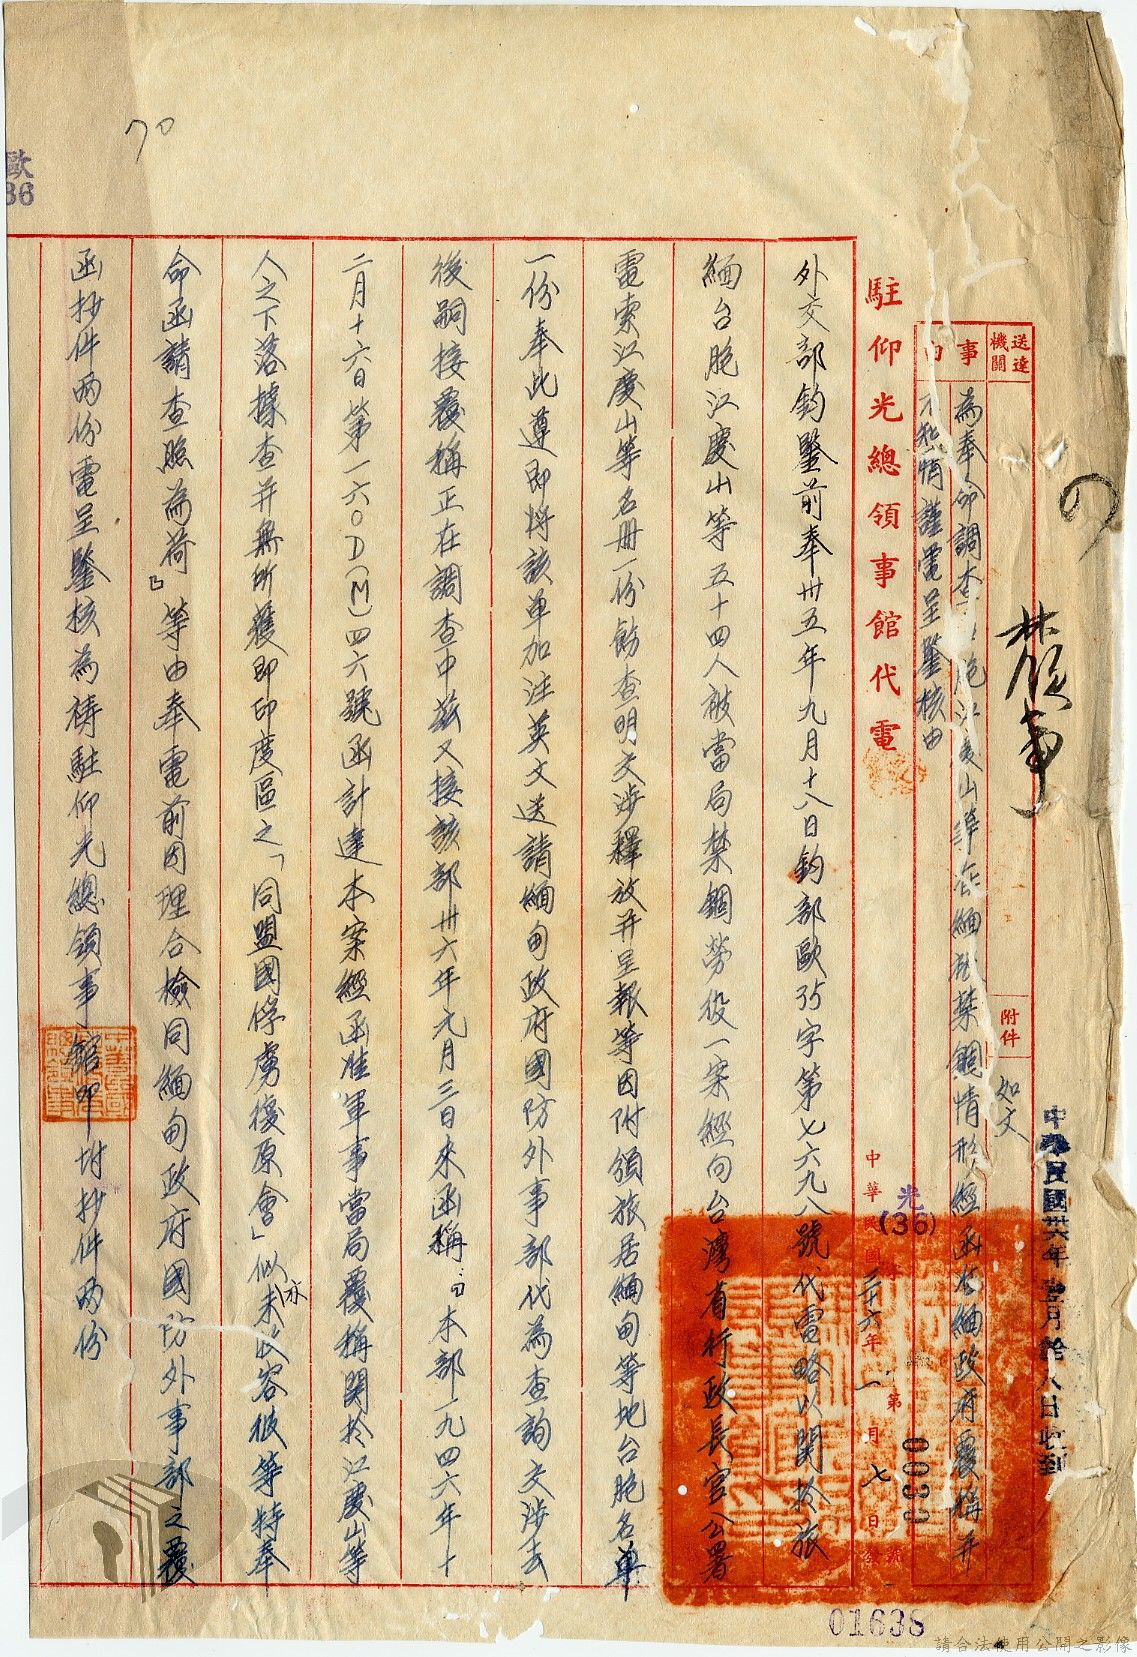 林領事
送達機關
附件
如文
事由
為奉命調查台胞江慶山等在緬被禁錮情形經函准緬政府覆稱并
不知情謹電呈鑒核由
駐仰光總領事館代電
中華民國三十六年一月七日發
光(36)字第0030號
中華民國卅六年壹月拾八日收到
外交部鈞鑒前奉卅五年九月十八日鈞部歐35字第七六九八號代電略以關於旅
緬台胞江慶山等五十四人被當局禁錮勞役一案經向台灣省行政長官公署
電索江慶山等名冊一份飭查明交涉釋放并呈報等因附頒旅居緬甸等地台胞名單
一份奉此遵即將該單加注英文送請緬甸政府國防外事部代為查詢交涉去
後嗣接覆稱正在調查中茲又接該部卅六年元月三日來函稱:「本部一九四六年十
二月十六日第一六○D(M)四六號函計達本案經函准軍事當局覆稱關於江慶山等
人之下落據查并無所獲即印度區之「同盟國俘虜復原會」似亦未收容彼等特奉
命函請查照為荷」等由奉電前因理合檢同緬甸政府國防外事部之覆
函抄件兩份電呈鑒核為禱駐仰光總領事館叩附抄件兩份
70
歐
36
01638
請合法使用公開之影像